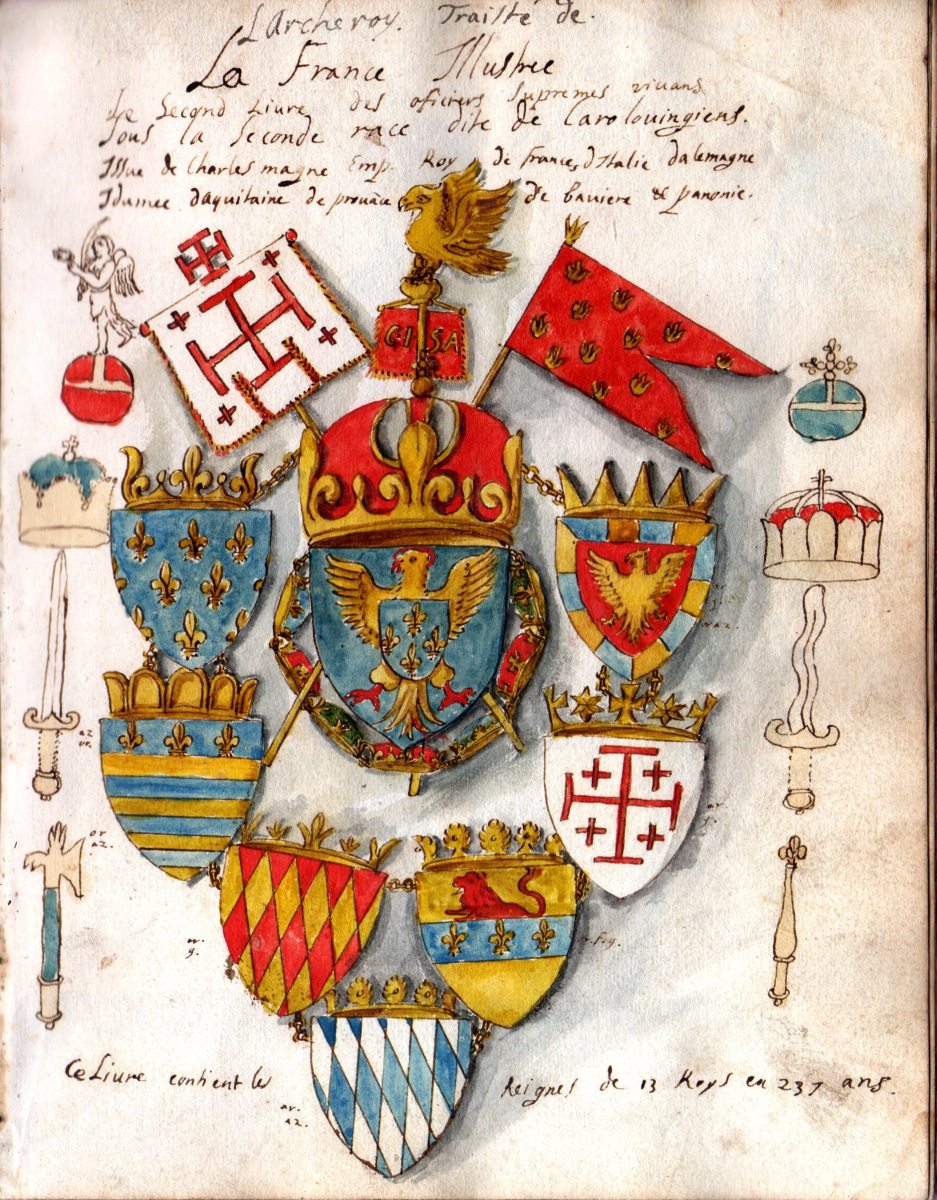 LArcheroy. Traitté de.
La France Illustree
Le Second Liure des oficiers supremes viuans
sous la seconde race dite de Carolouingiens.
Issue de Charles magne Emp. Roy de france, d'Italie dalemagne
Idumee daquitaine de prouāce de bauiere & panonie.
CI SA
az
or.
or.
az.
or.
g.
ar.
az.
Ce Liure contient les Reignes de 13 Roys en 237 ans.